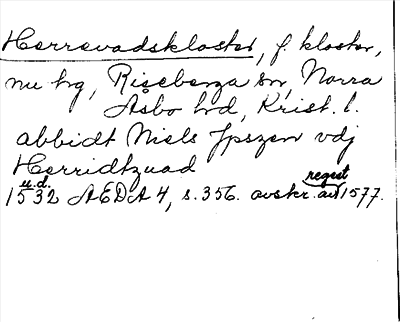 Herrevadskloster, f. kloster,
nu hg, Riseberga sn, Norra
Åsbo hd, Krist. l.
abbidt Niels Jpszen vdj
Herridtzuad
u.d.
regest
1532 AEDA 4, s. 356. avskr. av 1577.